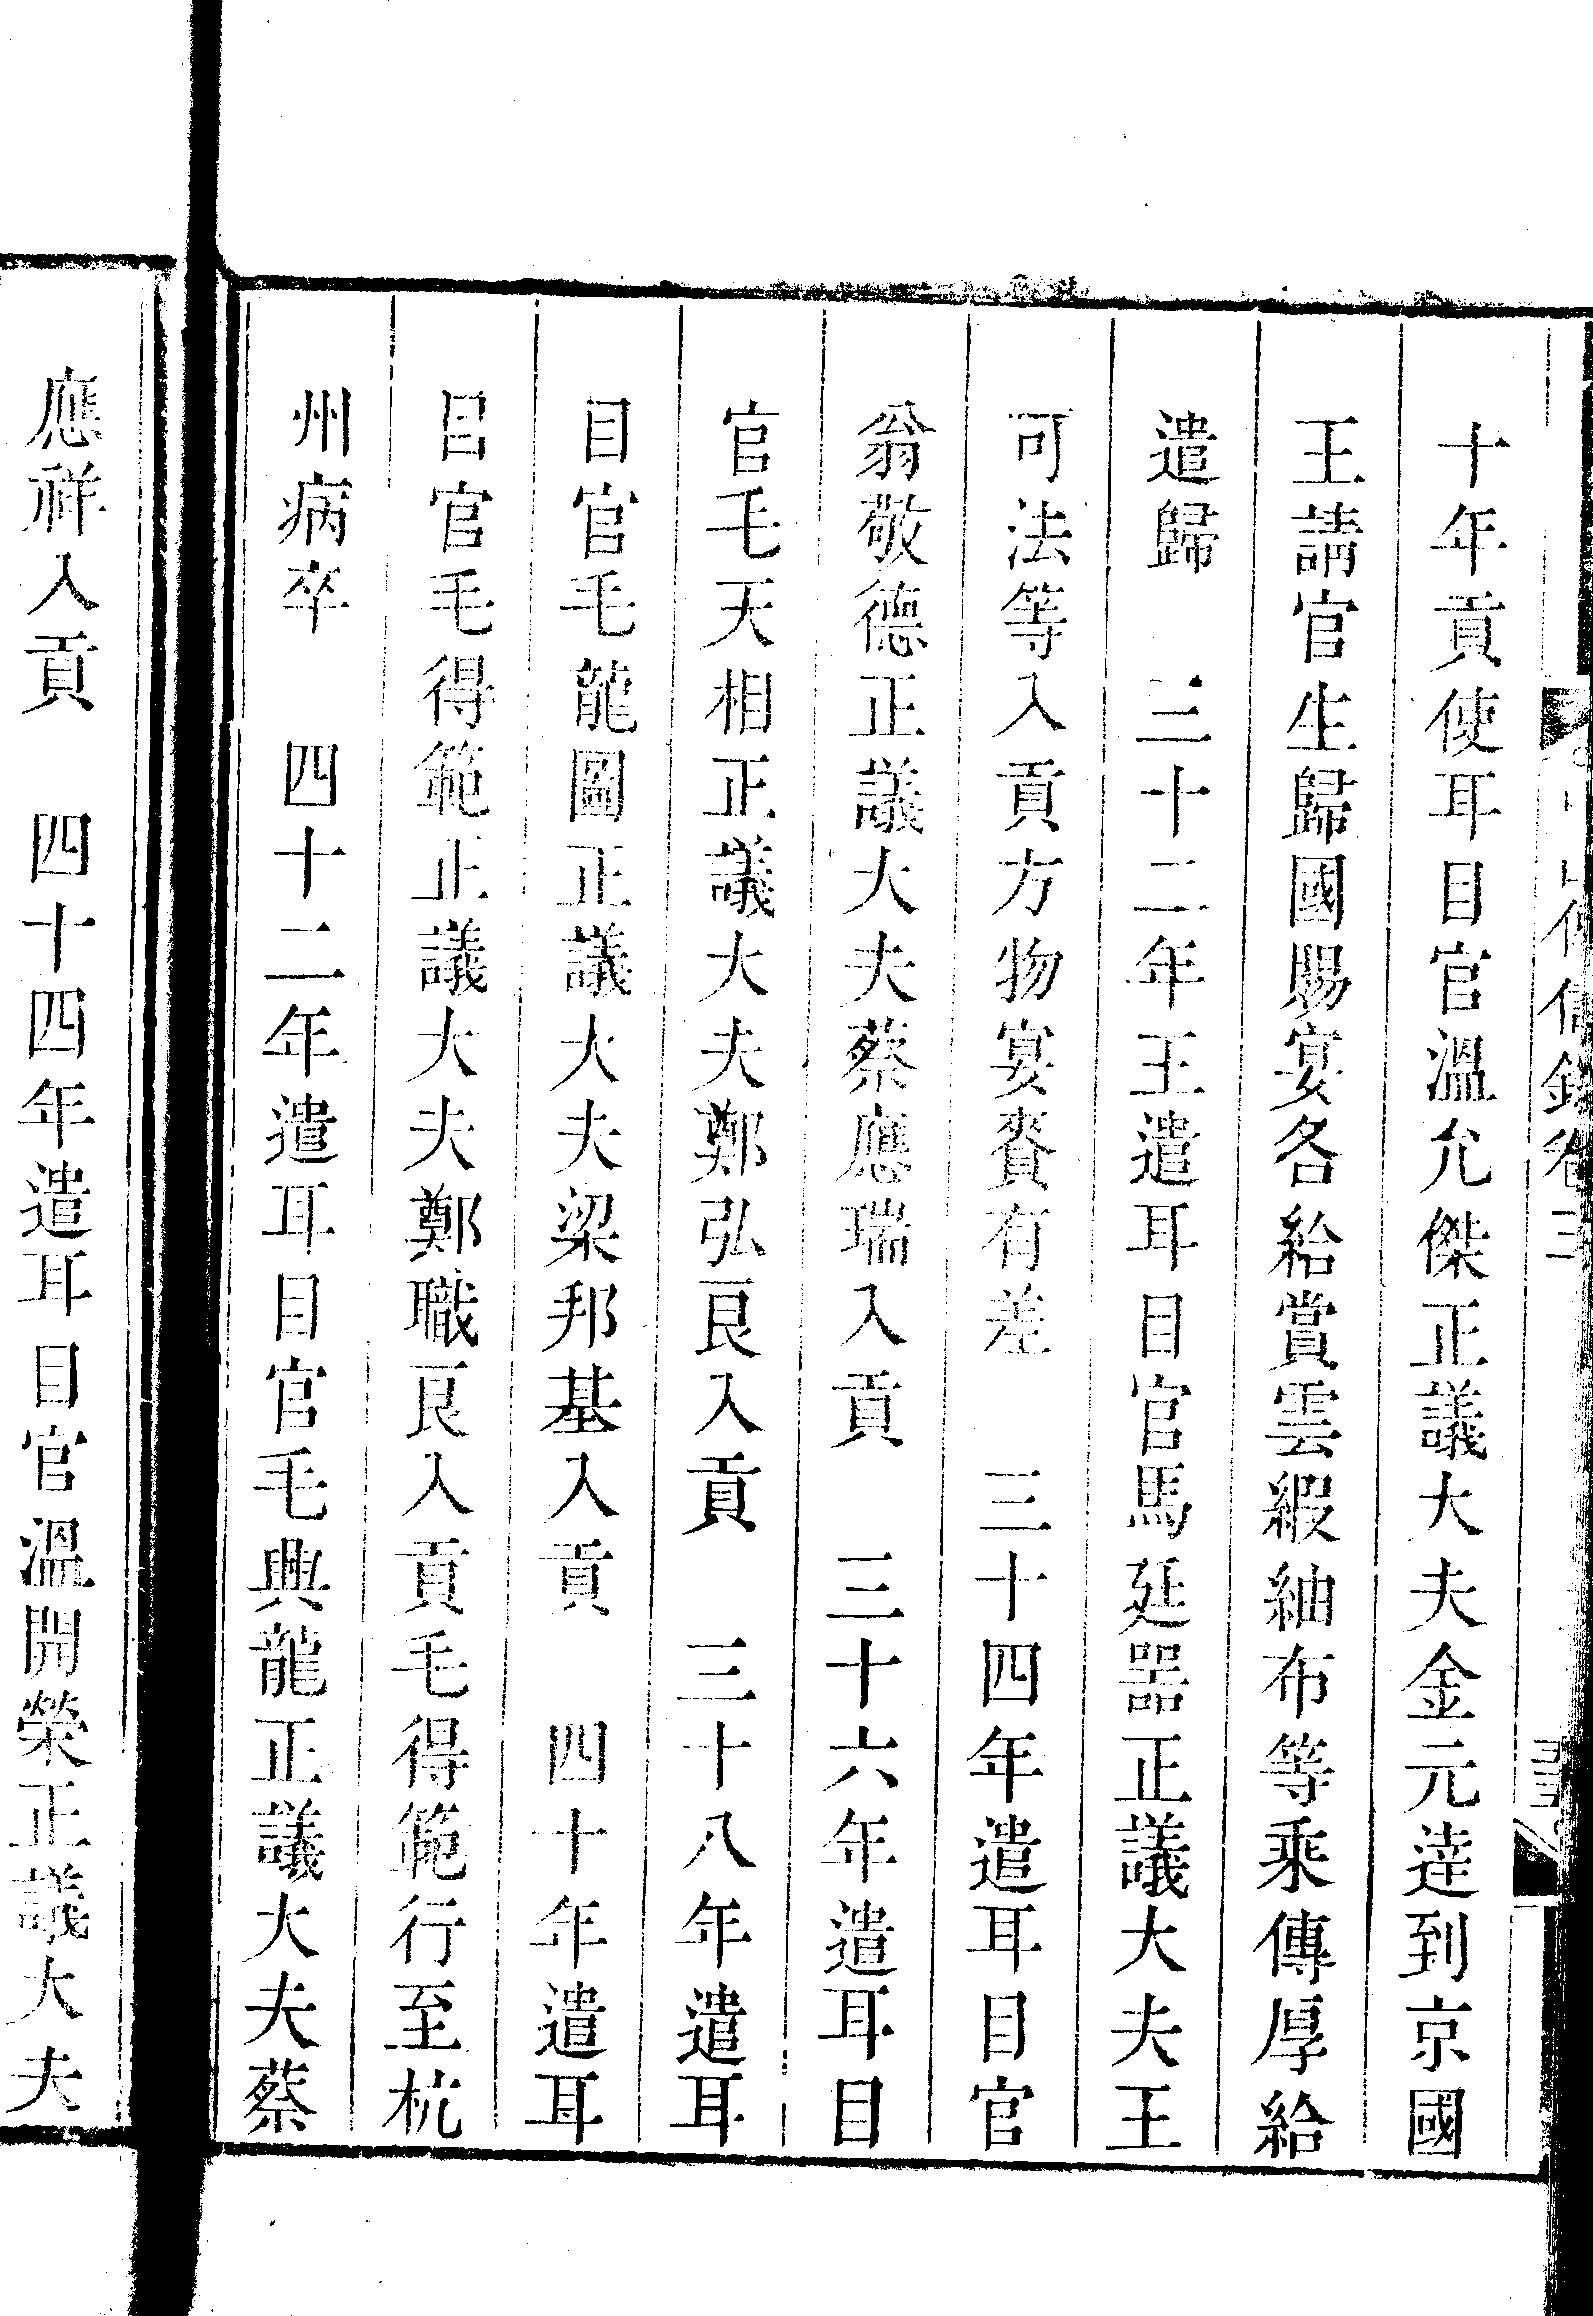 十年貢使耳目官溫允傑正議大夫金元達到京國
王請官生歸國賜宴各給賞雲緞紬布等乘傳厚給
遣歸　三十二年王遣耳目官馬延器正議大夫王
可法等入貢方物宴賚有差　三十四年遣耳目官
翁敬德正議大夫蔡應瑞入貢　三十六年遣耳目
官毛天相正議大夫鄭弘良入貢　三十八年遣耳
目官毛龍圖正議大夫梁邦基入貢　四十年遣耳
目官毛得範正議大夫鄭職良入貢毛得範行至杭
州病卒　四十二年遣耳目官毛興龍正議大夫蔡
應祥入貢　四十四年遣耳目官溫開榮正議大夫